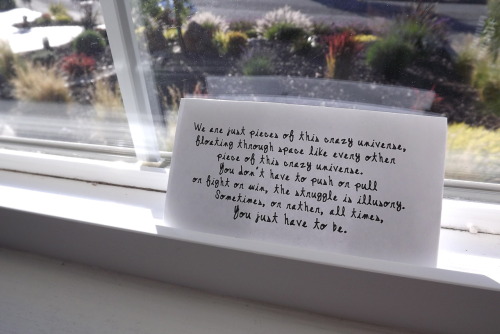 We are just pieces of this crazy universe,
floating through space like every other
piece of this crazy universe.
You don't have to push or pull
or fight or win, the struggle is illusory.
Sometimes, or rather, all times,
You just have to be.